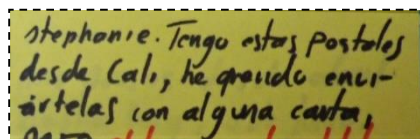 stephanie. Tengo estas postales
desde Cali, he querido envi-
ártelas con alguna carta,